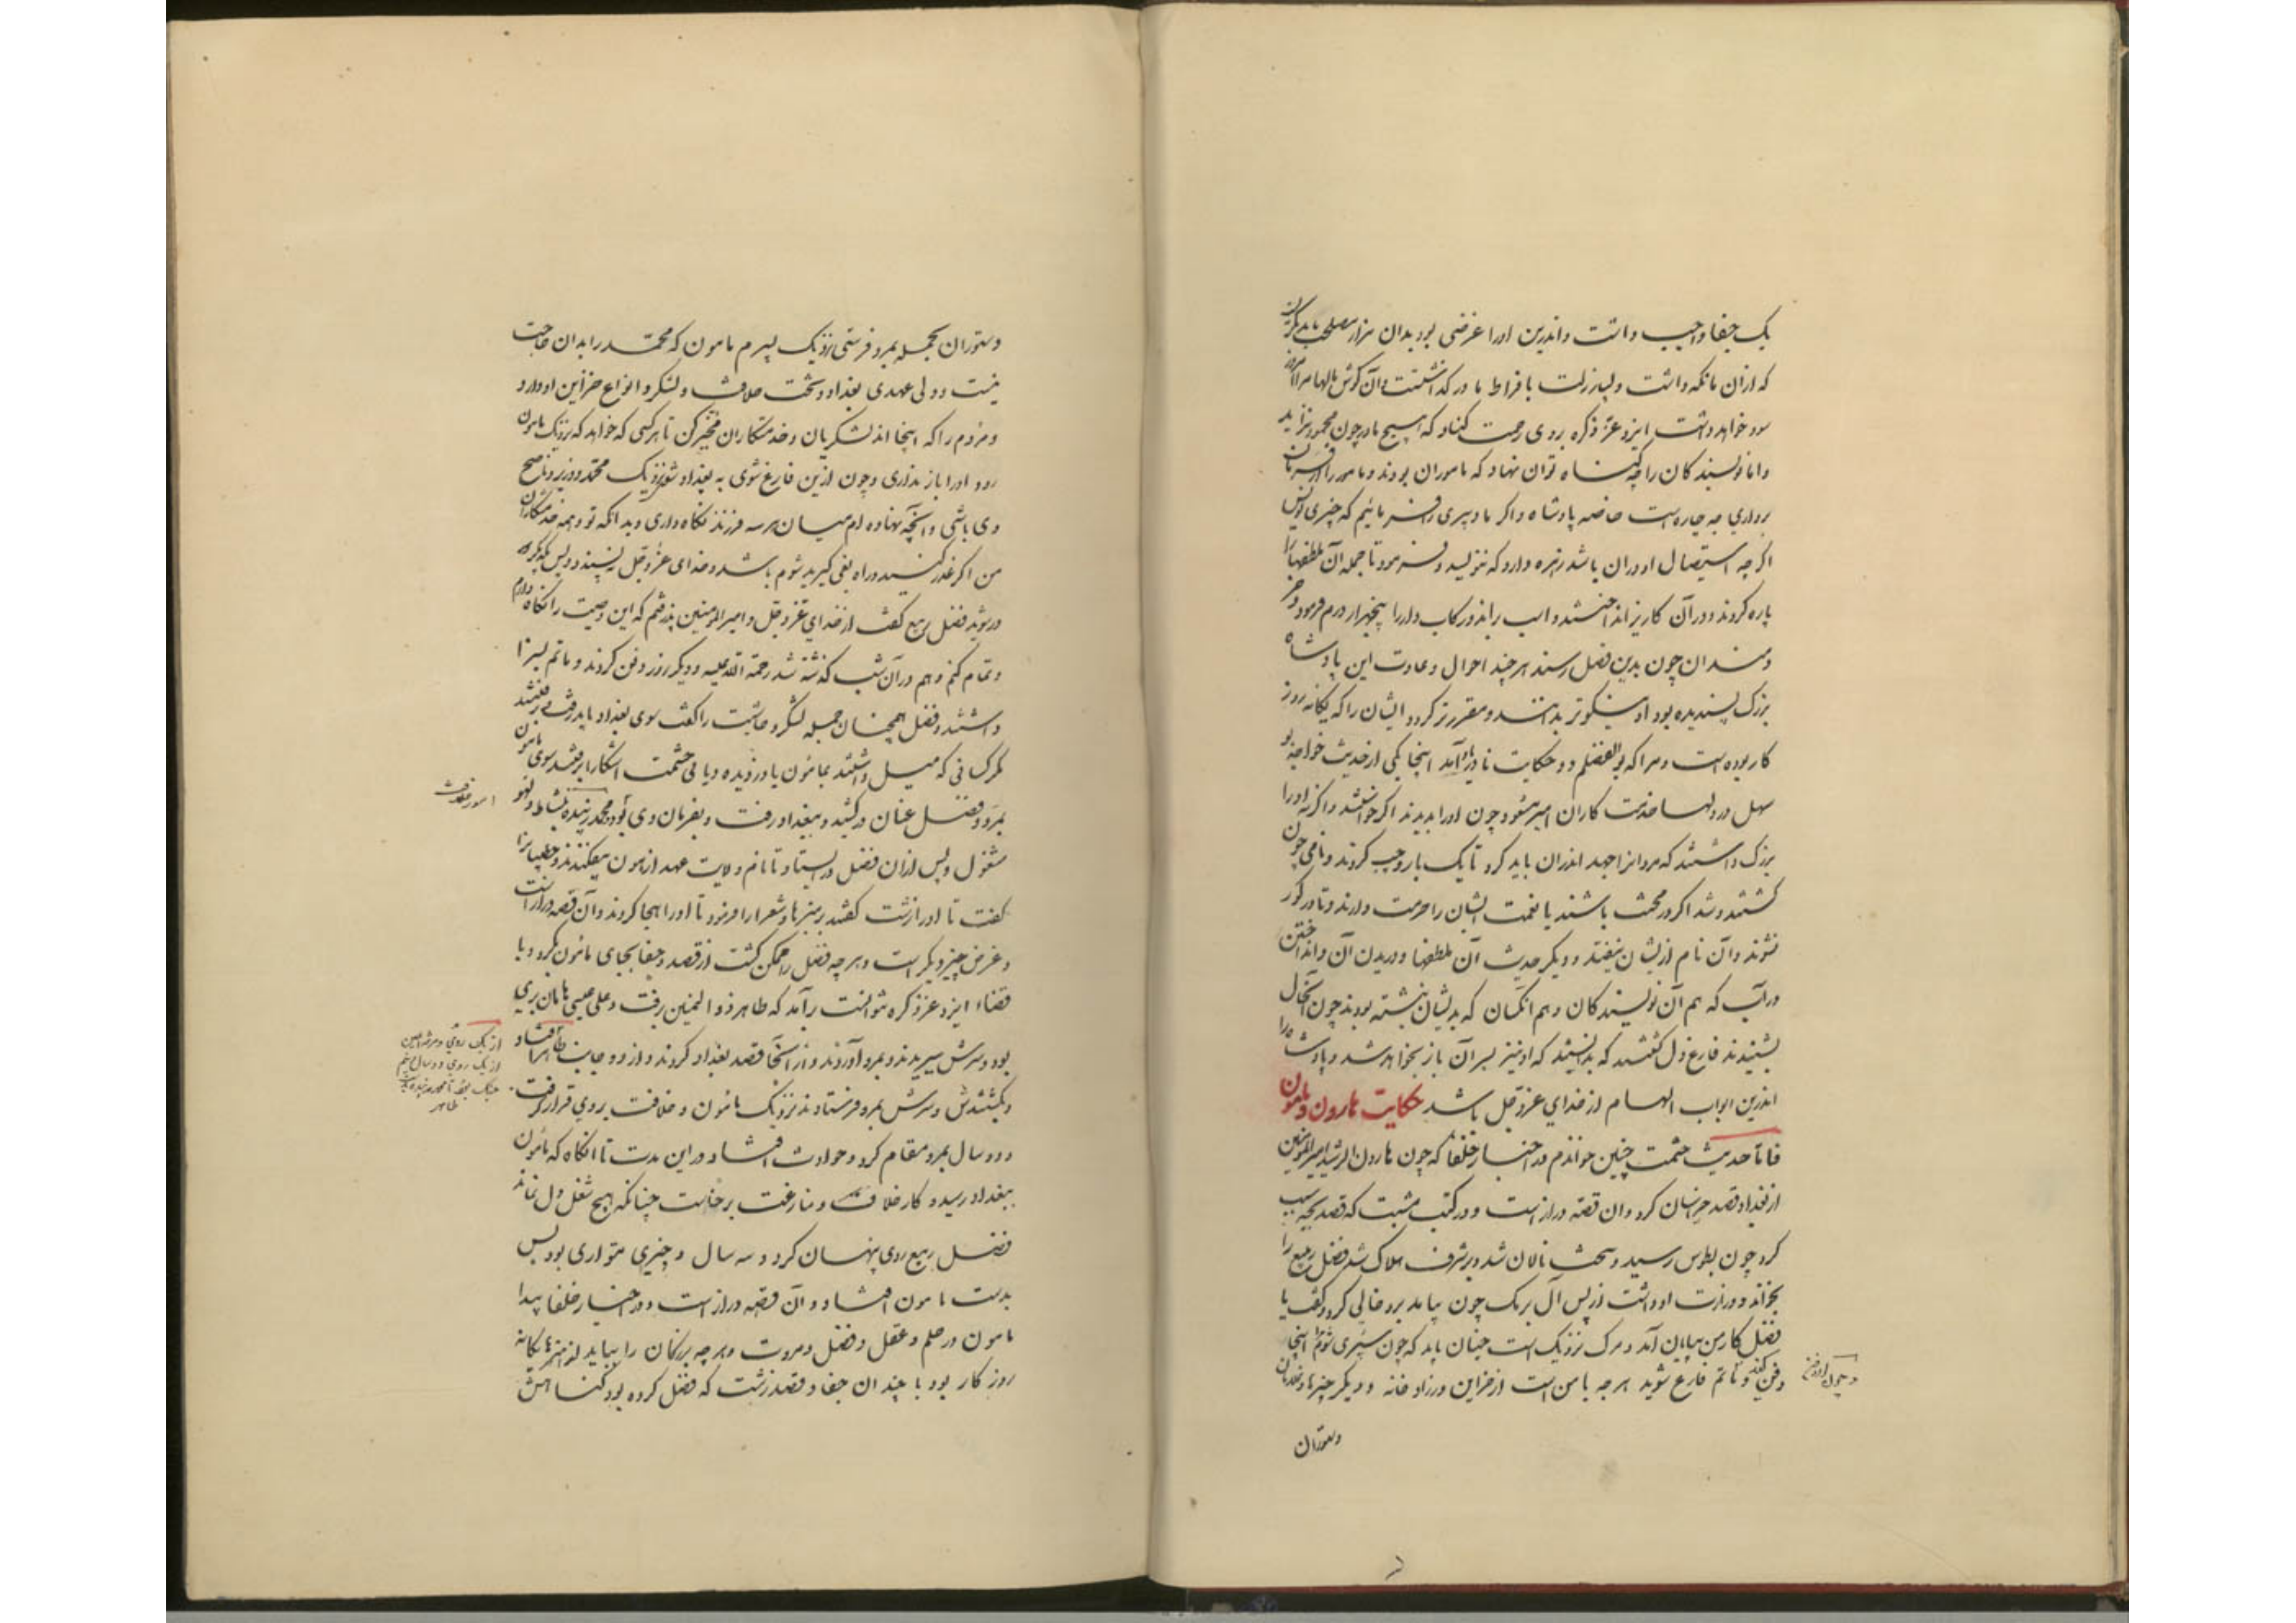 یک جفا واجب داشت و اندرین او را غرضی بود بدان هزار مصلحت باید نگریست
که از آن مانکه داشت و پدر زلت بافراط ما درگذاشتست و آن گوش مالها مرا امروز
سود خواهد داشت ایزد عز ذکره بر وی رحمت کناد که هیچ مادر چون محمود نزاید
و اما نویسندکان را چه گناه توان نهاد که ماموران بودند و مامور را از فرمان
برداری چه چاره است خاصه پادشاه و اگر ما دبیری را فرمائیم که چیزی نویس
اگر چه استیصال او در آن باشد زهره دارد که ننویسد و فرمود تا جمله آن ملطفها را
پاره کردند و در آن کاریز انداختند و اسب براند و رکاب دار را پنجهزار درم فرمود و خر
دمندان چون بدین فصل رسند هر چند احوال و عادت این پادشاه
بزرگ پسندیده بود او را نیکوتر بدانند و مقررتر گردد ایشان را که یگانه روز
کار بوده است و مرا که بوالفضلم دو حکایت نادر یاد آمد اینجا یکی از حدیث خواجه بو
سهل در دلها خدمت کاران امیر مسعود چون او را بدیدند اگر خواستند و اگر نه او را
بزرگ داشتند که مردانرا جهد اندران باید کرد تا یک بار وجیه گردند و نامی چون
گشتند و شد اگر در محنت باشند یا نعمت ایشان را حرمت دارند و تا در گور
نشوند و آن نام از یشان نیفتد و دیگر حدیث آن ملطفها و دریدن آن و انداختن
در آب که هم آن نویسندکان و هم آنکسان که بدیشان نبشته بودند چون آنحال
بشنیدند فارغ دل گشتند که بدانستند که او نیز بسر آن باز نخواهد شد و پادشاه را
اندرین ابواب الهام از خدای عز و جل باشد حکایت هارون و مامون
فاما حدیث حشمت چنین خواندم در اخبار خلفا که چون هارون الرشید امیر المؤمنین
از بغداد قصد خراسان کرد و آن قصه دراز است و در کتب مثبت که قصد بچه سبب
کرد چون بطوس رسید و سخت نالان شد و بر شرف هلاک شد فضل ربیع را
بخواند و وزارت او داشت از پس آل برمک چون بیامد برو خالی کرد و گفت یا
فضل کار من بپایان آمد و مرگ نزدیک است چنان باید که چون سپری شوم مرا اینجا
دفن کنند و ماتم فارغ شوید هر چه با من است از خزاین و زرادخانه و دیگر چیزها و غلامان
و چون از دفن
دستوران
دستوران بجمله بمرو فرستی نزدیک پسرم مامون که محمد را بدان حاجت
نیست و ولی عهدی بغداد و تخت خلافت و لشکر و انواع خزاین او دارد
و مردم را که اینجا اند لشکریان و خدمتکاران مخیر کن تا هر کسی که خواهد که نزدیک مامون
رود او را باز نداری و چون ازین فارغ شوی به بغداد شو نزدیک محمد و وزیر و ناصح
وی باشی و آنچه نهاده ام میان هر سه فرزند نگاه داری و بدانکه تو و همه خدمتکاران
من اگر غدر کنید و راه بغی گیرید شوم باشد و خدای عز و جل نپسندد و پس یکدیگر
در شوید فضل ربیع گفت از خدای عز و جل و امیر المومنین پذرفتم که این وصیت را نگاه دارم
و تمام کنم و هم در آن شب گذشته شد رحمة الله علیه و دیگر روز دفن کردند و ماتم بسزا
داشتند و فضل همچنان جمله لشکر و حاشیت را گفت سوی بغداد باید رفت برفتند
مگر کسانی که میل داشتند بمامون یا دزدیده و یا بی حشمت آشکارا برفتند سوی مامون
بمرو و فضل عنان درکشید و ببغداد رفت و بفرمان وی بود و محمد زبیده بنشاط و لهو
مشغول و پس از آن فضل در ایستاد تا نام ولایت عهد از مامون بیفکندند و خطیبانرا
گفت تا او را زشت گفتند بر منبرها و شعرا را فرمود تا او را هجا کردند و آن قصه دراز است
و غرض چیز دیگر است و هر چه فضل را ممکن گشت از قصد و جفا بجای مامون بکرد و با
قضاء ایزد عز ذکره نتوانست برآمد که طاهر ذوالیمنین برفت و علی عیسی ماهان بری
بود و سرش ببریدند و بمرو آوردند و از آنجا قصد بغداد کردند و از دو جانب
و بکشتندش و سرش بمرو فرستادند نزدیک مامون و خلافت بروی قرار گرفت
و دو سال بمرو مقام کرد و حوادث افتاد در این مدت تا آنگاه که مامون
ببغداد رسید و کار خلافت و منازعت برخاست چنانکه هیچ شغل دل نماند
فضل ربیع روی پنهان کرد و سه سال و چیزی متواری بود پس
بدست مامون افتاد و آن قصه دراز است و در اخبار خلفا پیدا
مامون در حلم و عقل و فضل و مروت و هر چه بزرگان را بباید از هنرها یگانه
روزگار بود با چندان جفا و قصد زشت که فضل کرده بود گناهش
امور خلافت
از یک روی
از یک روی و دو سال
طاهر